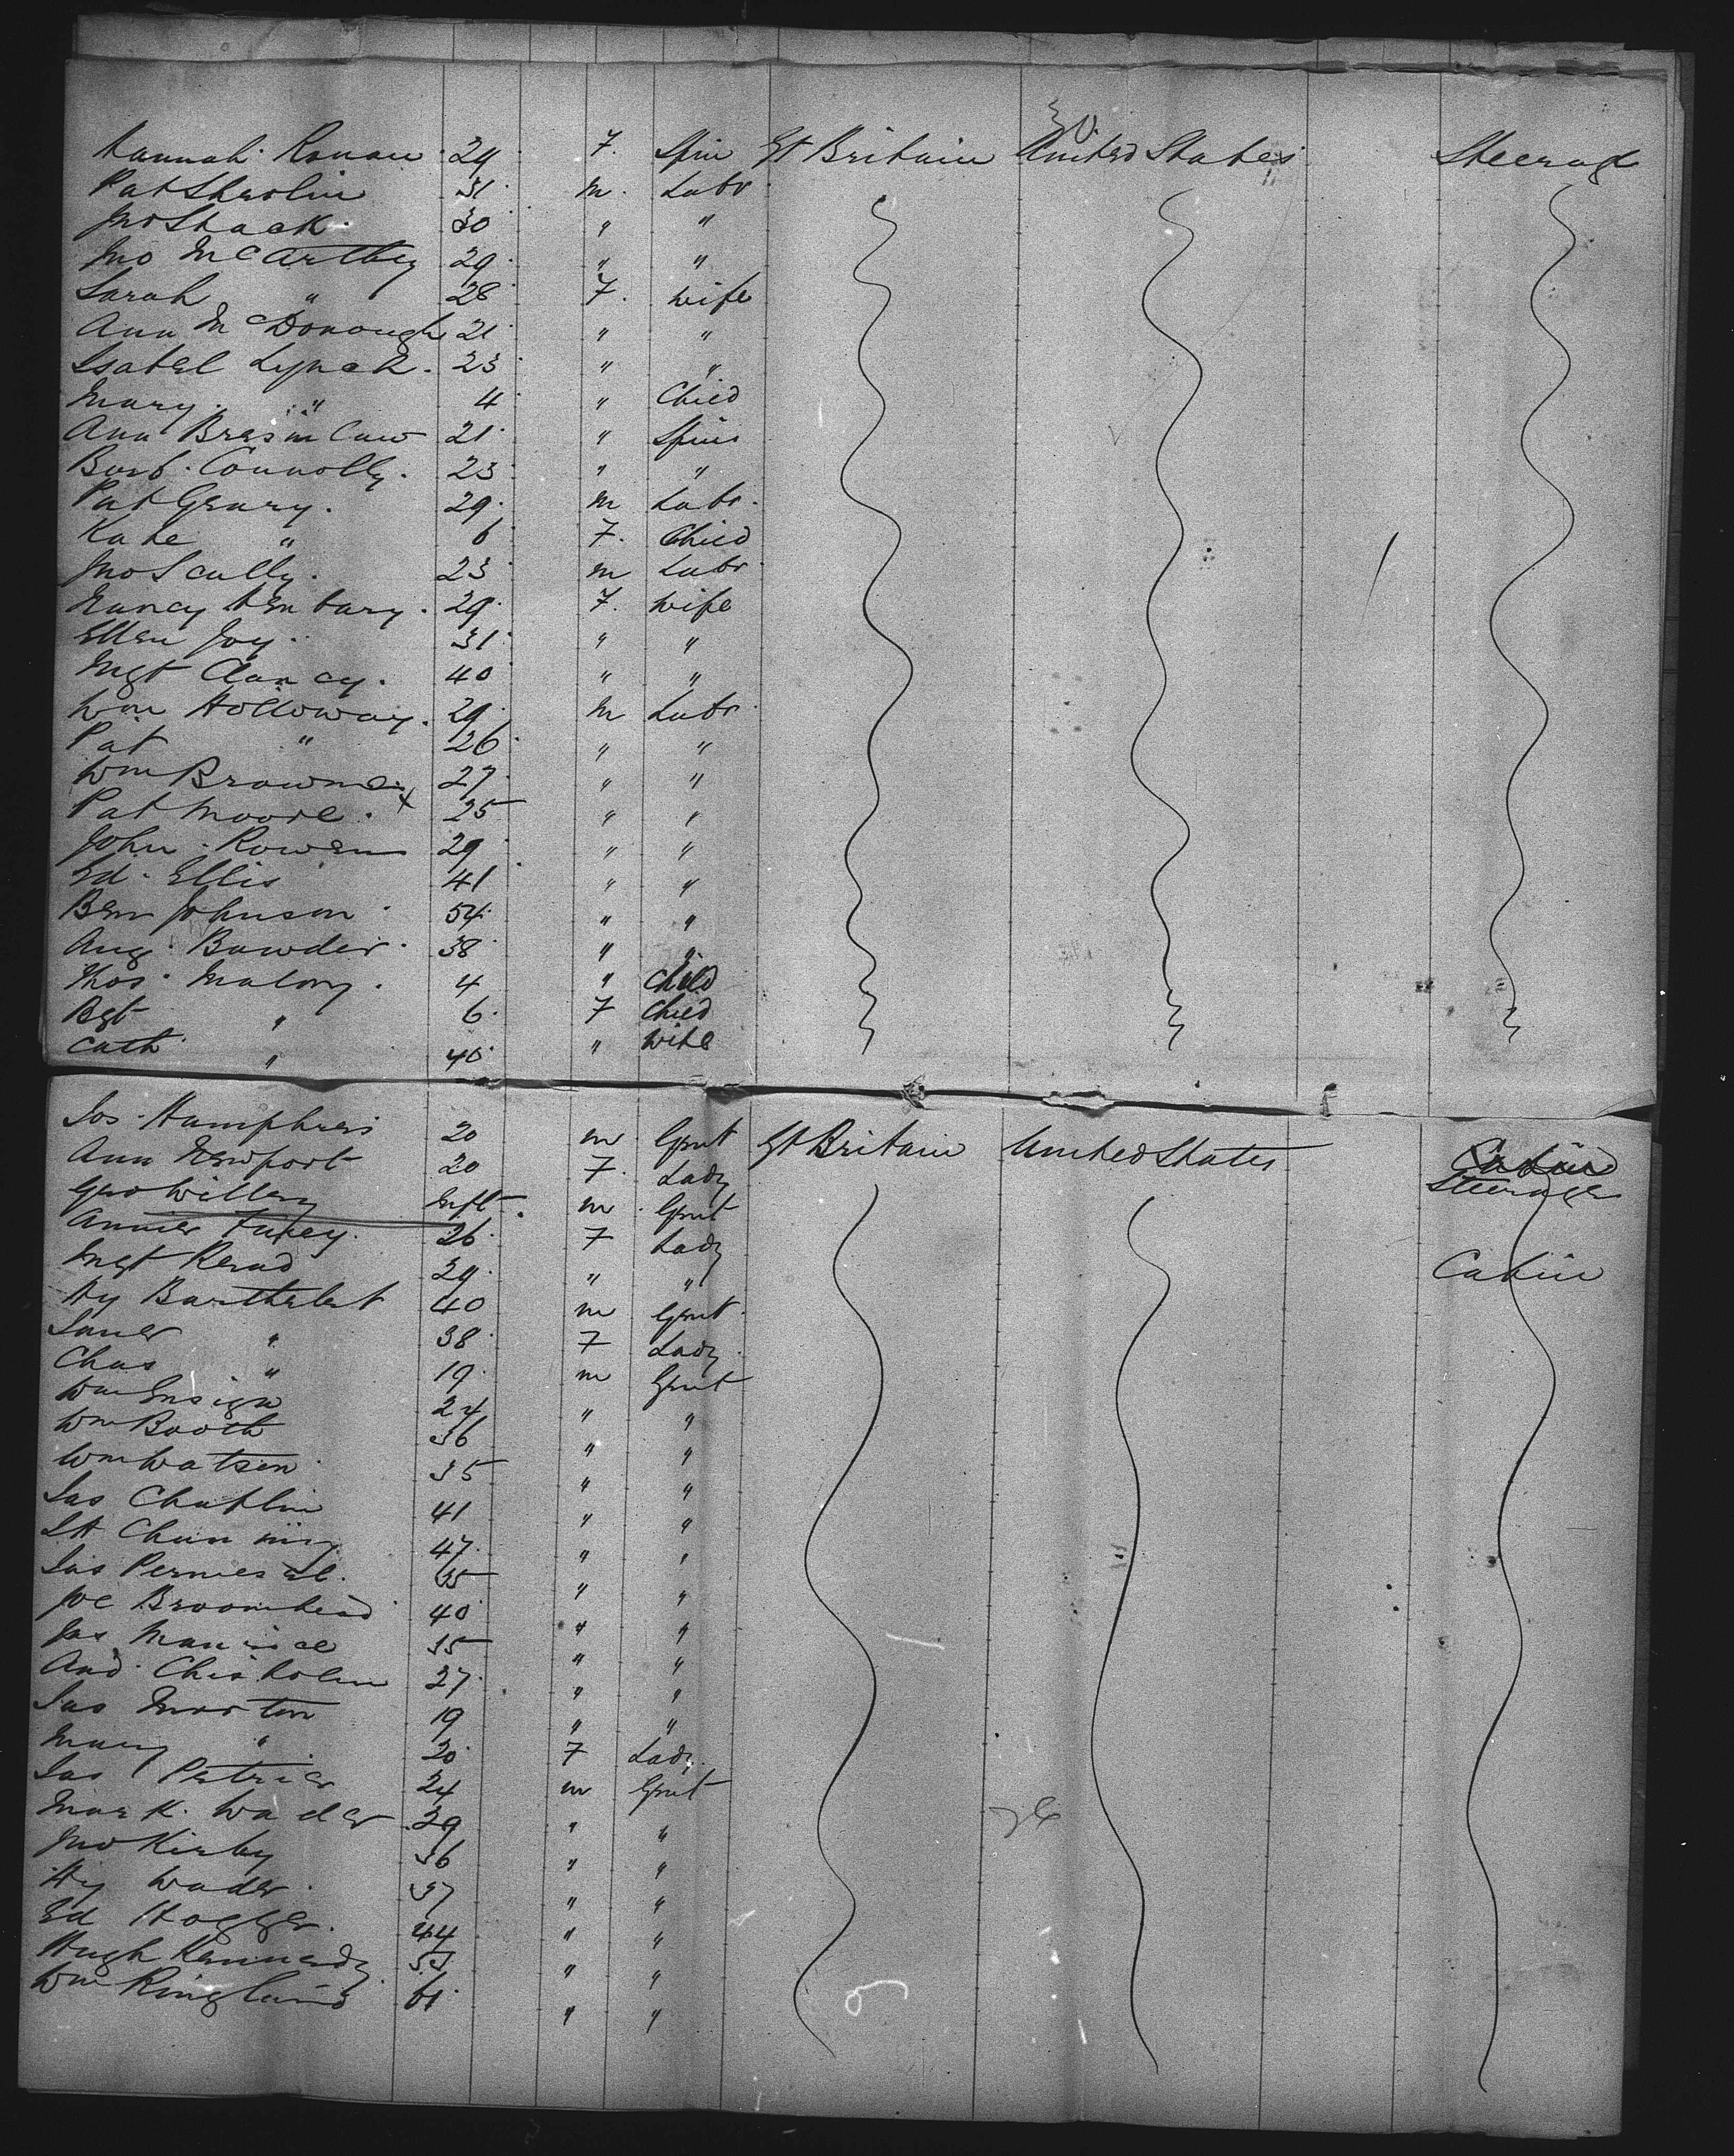 Hannah Ronan 24 F. Spin Gt Britain United States Steerage
Pat 31 m. Labr
Jno Shack 30 " "
Jno McCarthy 29 " "
Sarah " 28 F. wife
Ann McDonough 21 " "
Isabel Lynch 23 " "
Mary " 4 " Child
Ann 21 " Spin
Barb. Connolly 23 " "
Pat Geary 29 m Labr
Kate " 6 F. Child
Jno Scully 23 m Labr
Nancy 29 F. wife
Ellen Joy 31 " "
Mgt Clancy 40 " "
Wm Holloway 29 m Labr
Pat " 26 " "
Wm 27 " "
Pat Moore 25 " "
John Rowen 29 " "
Ed. Ellis 41 " "
Ben Johnson 54 " "
Aug. Bowder 38 " "
Thos. Malony 4 " Child
Bgt " 6 F Child
Cath " 40 " wife
Jos. Humphries 20 m Gent Gt Britain United States Cabin
Ann Newport 20 F. Lady Steerage
Geo Willery Inft m Gent
Annie 26 F Lady
Mgt 29 " " Cabin
Hy 40 m Gent
" 38 F Lady
Chas " 19 m Gent
Wm Ensign 24 " "
Wm Booth 36 " "
Wm Watson 35 " "
Jas Chaplin 41 " "
47 " "
Jas 35 " "
Joe Broomhead 40 " "
Jas 35 " "
And. Chisholm 27 " "
Jas Morton 19 " "
Mary " 20 F Lady
Jas Petrie 24 m Gent
Mark Wader 29 " "
Jno Kirby 36 " "
Hy Wader 37 " "
Ed 44 " "
Hugh Kennedy 53 " "
Wm Ringland 61 " "